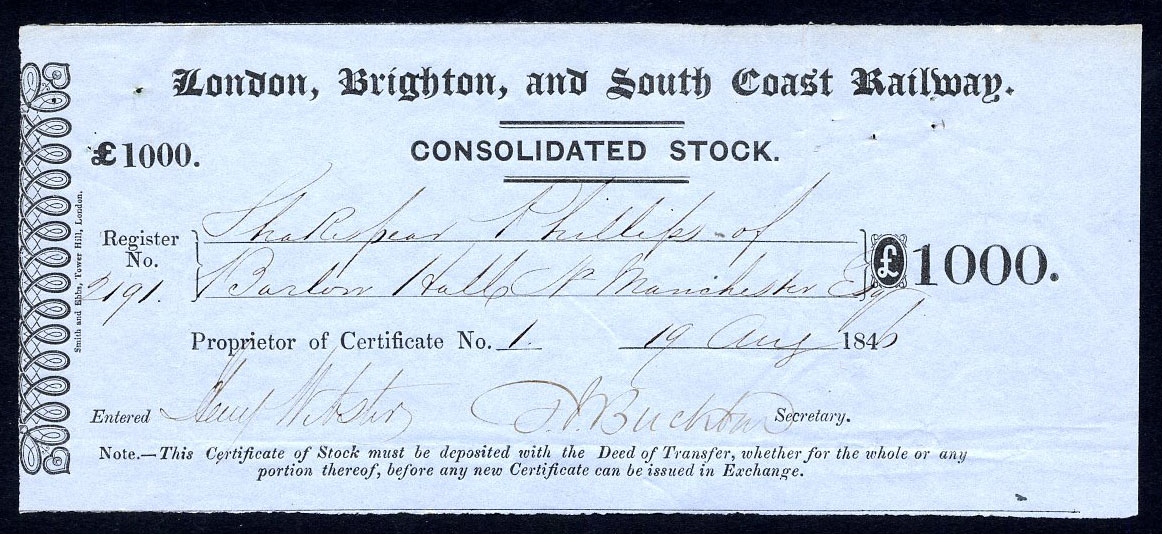 London, Brighton, and South Coast Railway.
£1000.
CONSOLIDATED STOCK.
Register No. 2191.
Shakespear Phillips of
Barton Hall Nr Manchester Esqr
£1000.
Proprietor of Certificate No. 1. 19 Aug 1846
Entered Henry Webster T. J. Buckton Secretary.
Note.—This Certificate of Stock must be deposited with the Deed of Transfer, whether for the whole or any
portion thereof, before any new Certificate can be issued in Exchange.
Smith and Ebbs, Tower Hill, London.